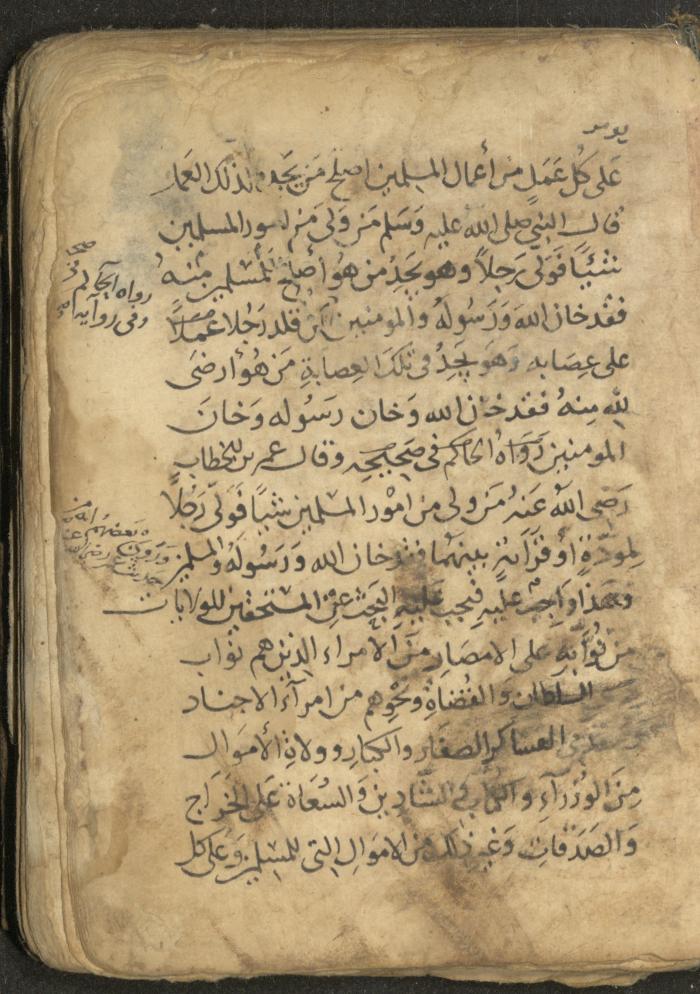 على كُل عَمَلٍ من أعمال المسلمين اصلح مَن يَجده لذلك العمل
قال النبي صلى الله عليه وَسَلم مَن وَلى مَن امور المسلمين
شَيْئًا فَوَلّى رَجلاً وهو يَجِدُ من هُو أصلح للمسلمين مِنْهُ
فقد خان الله وَرَسُولهُ والمومنين من قلد رَجُلا عَملاً
على عِصَابه وَهوَ يجدُ فى تلك العِصابةِ مَن هُو أرضى
لله مِنهُ فقد خان الله وَخان رسَوله وَخانَ
المومنين رَوَاهُ الحاكم فى صَحِيحِه وقال عمر بن الخطاب
رَضى اللهُ عَنهُ مَن ولى من امْور المسلمين شيًا فَوَلّى رَجُلاً
لمودّةٍ أو قَرَابَةٍ بينهُما فقد خان الله وَرَسُولَهُ والمسلمين
وهَذا وَاجبٌ عليهِ فيجب عَليهِ البَحث عن المستحقين للولايات
من نُوّابهِ على الامصَارِ مَن الامراء الذين هم نواب
السلطان وَالقُضاةُ ونحوهم من امرآء الاجناد
العساكر الصغار والكبار وولاة الأموال
مِنَ الوُزرآء وَالكُتاب وَالشَّادين وَالسُعَاة عَلى الخَرَاج
وَالصَدَقات وَغير ذلك من الاموَالِ التى للمسلمين وَعلى كل
رواه الحاكم
وفى روايه